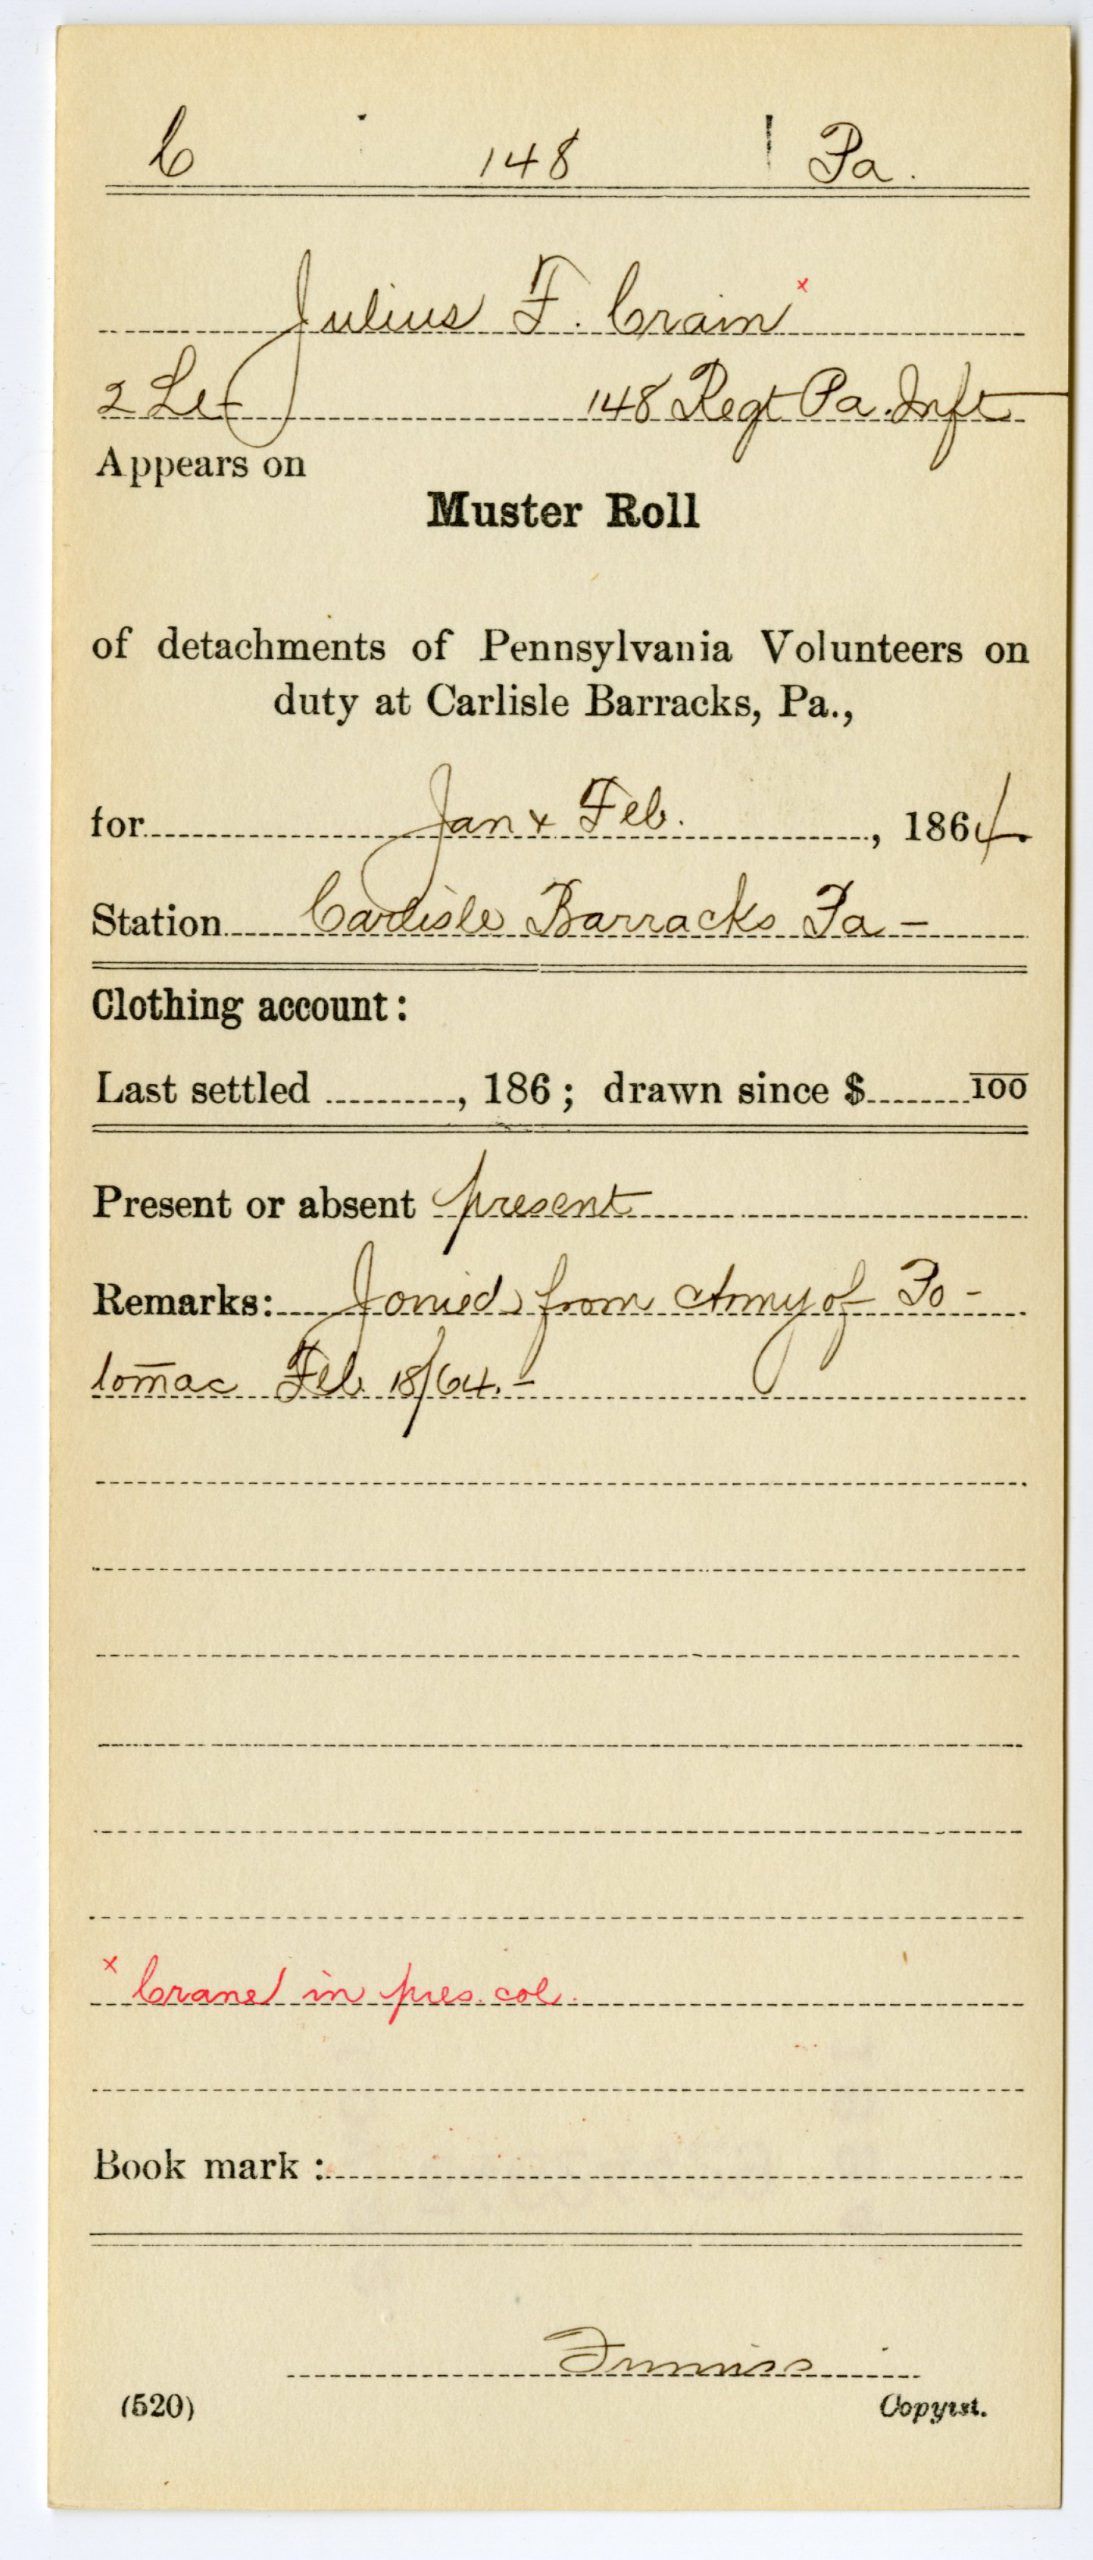 C 148 Pa.
Julius F. Crain x
2 Lt 148 Regt Pa. Inft
Appears on
Muster Roll
of detachments of Pennsylvania Volunteers on
duty at Carlisle Barracks, Pa.,
for Jan & Feb. , 1864
Station Carlisle Barracks Pa –
Clothing account:
Last settled , 186 ; drawn since $ 100
Present or absent present
Remarks: Joined from Army of Po-
tomac Feb 18/64. –
x Crane in pres. col.
Book mark :
(520) Copyist.